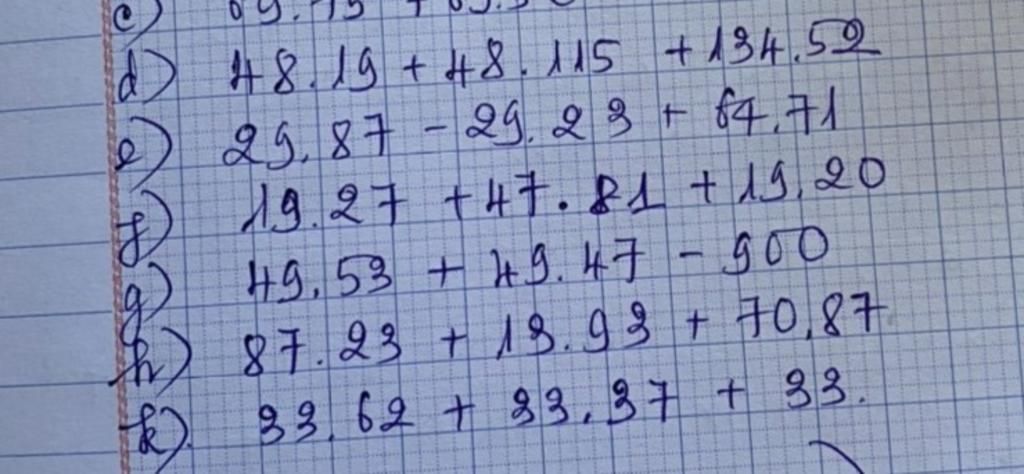 c)
d) 48.19 + 48.115 + 134.52
e) 29.87 - 29.23 + 64.71
f) 19.27 + 47.81 + 19.20
g) 49.53 + 49.47 - 900
h) 87.23 + 13.93 + 70.87
k) 33.62 + 33.37 + 33.